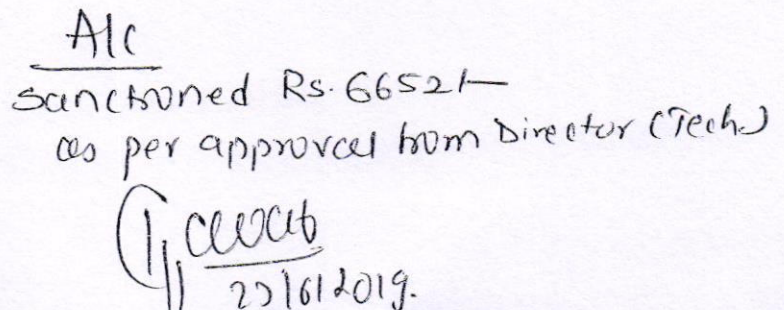 A/c
Sanctioned Rs. 6652/-
as per approval from Director (Tech.)